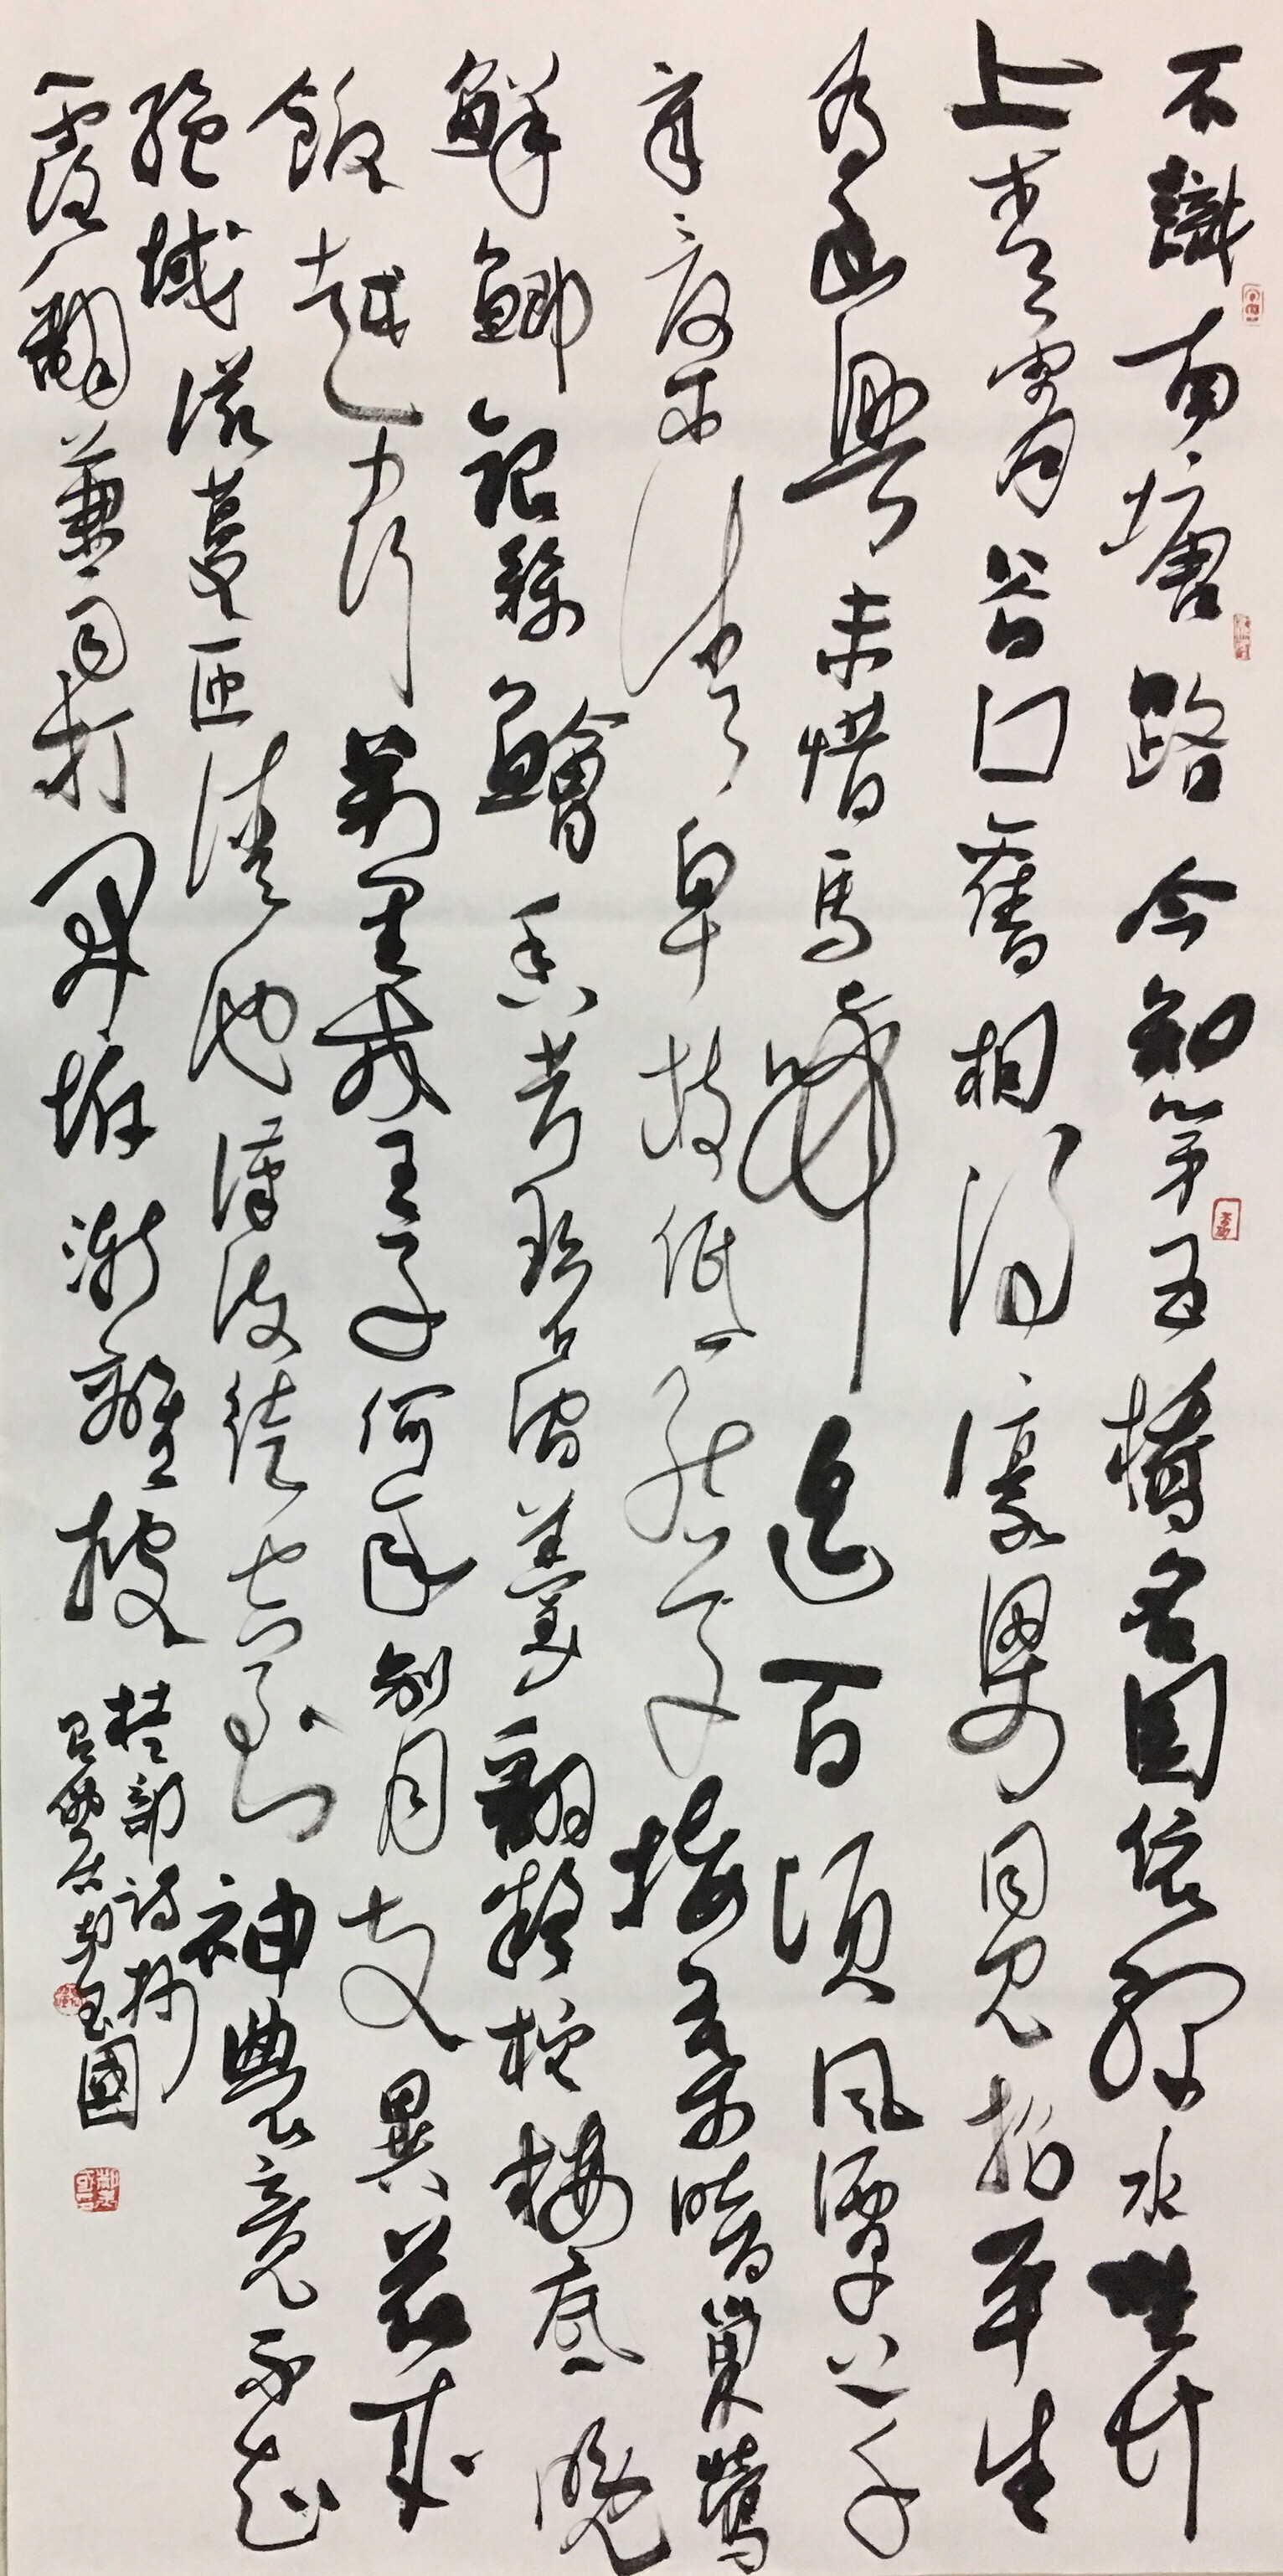 不識南塘路今知第五橋名園依綠水野竹
上青霄谷口舊相得濠梁同見招平生
為幽興未惜馬蹄遙百頃風潭上千
章夏木清卑枝低結子接葉暗巢鶯
鮮鯽銀絲鱠香芹碧澗羹翻疑柁樓底晚
飯越中行萬里戎王子何年別月支異花來
絕域滋蔓匝清池漢使徒空到神農竟不知
露翻兼雨打開坼漸離披
杜部詩抄
玉國